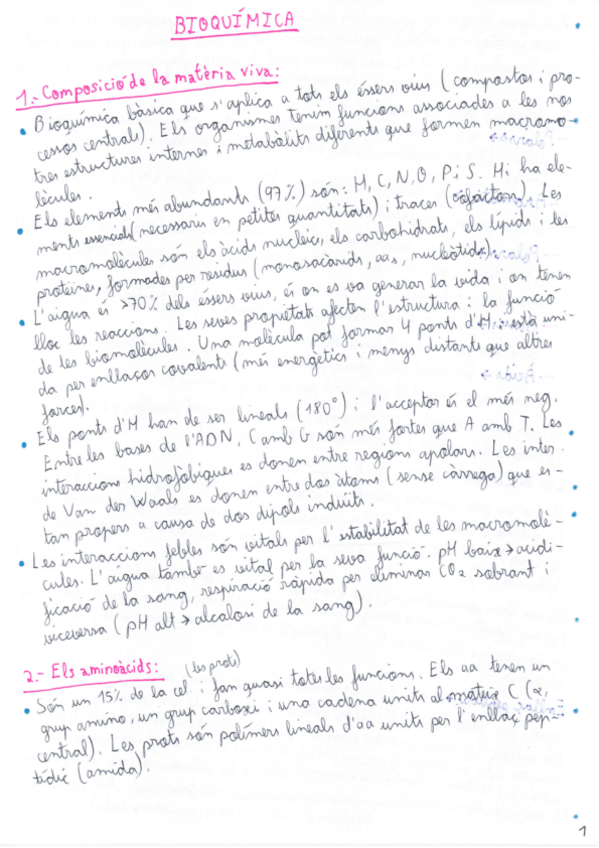 BIOQUÍMICA
1.- Composició de la matèria viva:
• Bioquímica bàsica que s'aplica a tots els éssers vius (compostos i pro-
cessos centrals). Els organismes tenim funcions associades a les nos
tres estructures internes i metabòlits diferents que formen macromo-
lècules.
• Els elements més abundants (97%) són: H, C, N, O, P i S. Hi ha ele-
ments essencials (necessaris en petites quantitats) i traces (cofactors). Les
macromolècules són els àcids nucleics, els carbohidrats, els lípids i les
proteïnes, formades per residus (monosacàrids, aas, nucleòtids).
• L'aigua és >70% dels éssers vius, és on es va generar la vida i on tenen
lloc les reaccions. Les seves propietats afecten l'estructura i la funció
de les biomolècules. Una molècula pot formar 4 ponts d'H i està uni-
da per enllaços covalents (més energètics i menys distants que altres
forces).
• Els ponts d'H han de ser lineals (180°) i l'acceptor és el més neg.
Entre les bases de l'ADN, C amb G són més fortes que A amb T. Les
interaccions hidrofòbiques es donen entre regions apolars. Les inter.
de Van der Waals es donen entre dos àtoms (sense càrrega) que es-
tan propers a causa de dos dipols induïts.
• Les interaccions febles són vitals per l'estabilitat de les macromolè-
cules. L'aigua també es vital per la seva funció. pH baix → acidi-
ficació de la sang, respiració ràpida per eliminar CO2 sobrant i
viceversa (pH alt → alcalosi de la sang).
2.- Els aminoàcids: (les prots)
• Són un 15% de la cel i fan quasi totes les funcions. Els aa tenen un
grup amino, un grup carboxi i una cadena units al mateix C (α,
central). Les prots són polímers lineals d'aa units per l'enllaç pep-
tídic (amida).
1